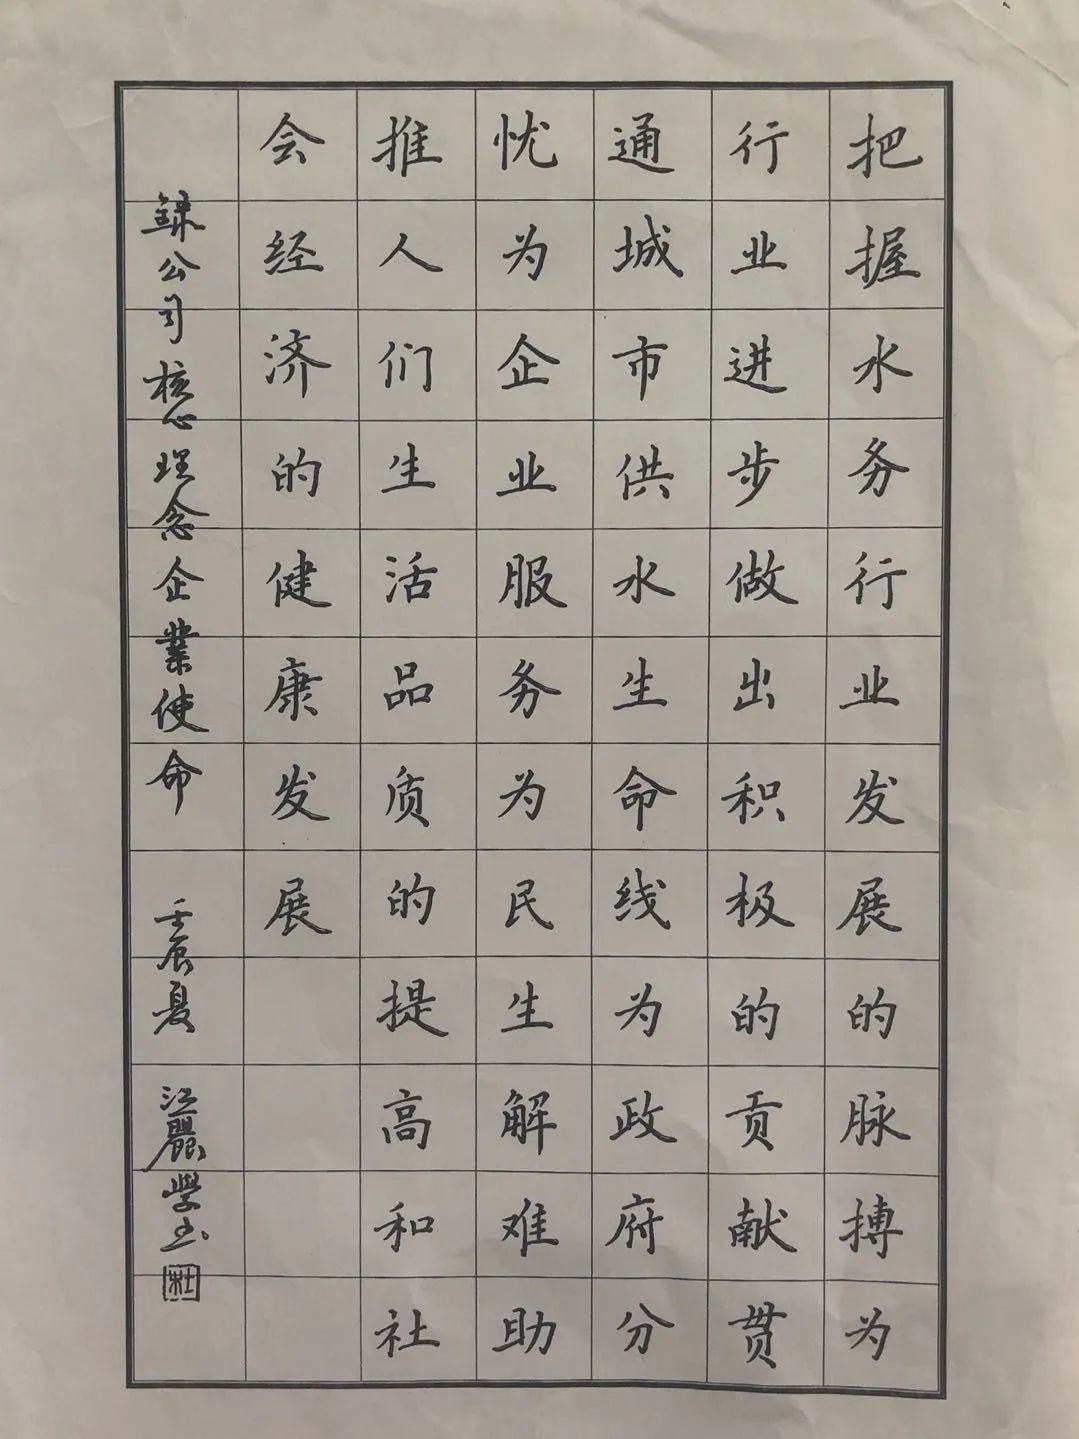 把握水务行业发展的脉搏为
行业进步做出积极的贡献贯
通城市供水生命线为政府分
忧为企业服务为民生解难助
推人们生活品质的提高和社
会经济的健康发展
録公司核心理念企業使命 壬辰夏 江麗學书 杜